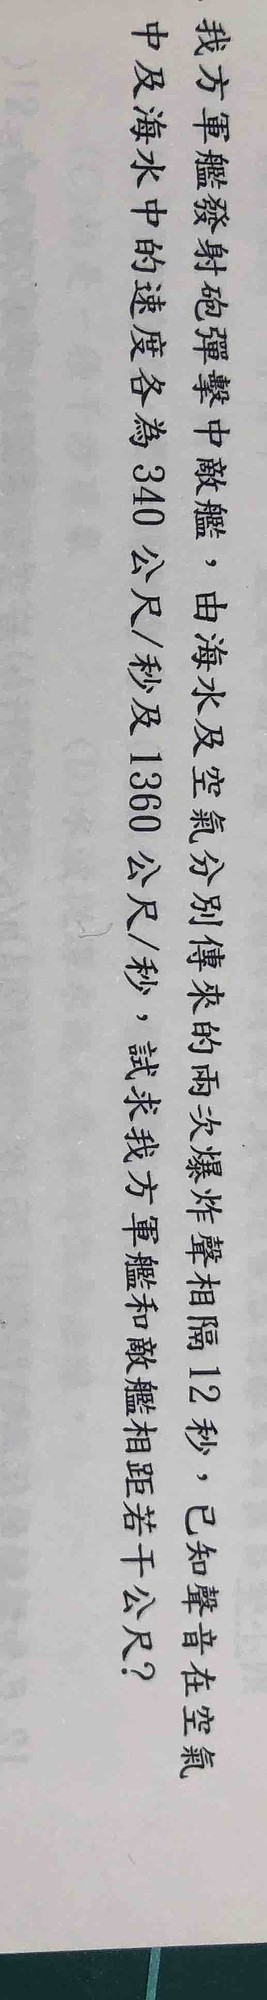 我方軍艦發射砲彈擊中敵艦，由海水及空氣分別傳來的兩次爆炸聲相隔12秒，已知聲音在空氣
中及海水中的速度各為340公尺/秒及1360公尺/秒，試求我方軍艦和敵艦相距若干公尺？